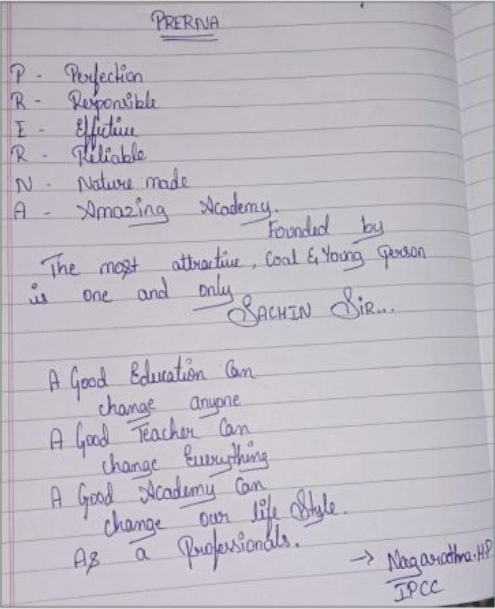 PRERNA
P - Perfection
R - Responsible
E - Effective
R - Reliable
N - Nature made
A - Amazing Academy.
Founded by
The most attractive, Coal & Young person
is one and only
SACHIN SIR...
A Good Education Can
change anyone
A Good Teacher Can
change Everything
A Good Academy Can
change our life Style.
As a Professionals.
→ Nagarathna.HP
IPCC